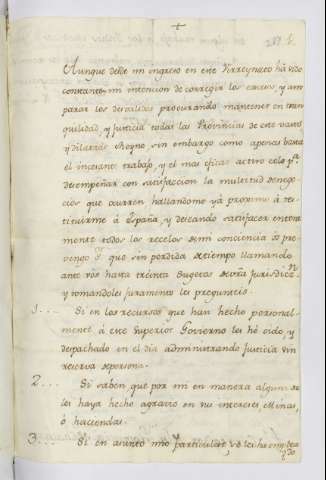 +
Aunque desde mi ingreso en este Virreynato há sido
constante mi intencion de corregir los excesos, y am
parar los desvalidos procurando mantener en tran
quilidad, y justicia todas las Provincias de este vasto
y dilatado Reyno, sin embargo como apenas basta
el incesante trabajo, y el mas eficaz activo celo pa.
desempeñar con satisfaccion la multitud de nego
cios que ocurren hallandome yá proximo á res
tituirme á España, y deseando satisfacer entera
mente todos los recelos de mi conciencia os pre
vengo que sin perdida de tiempo llamando
ante vos hasta treinta Sugetos de esta Jurisdicn.
y tomandoles juramento les pregunteis.
1... Si en los recursos que han hecho personal
mente á este Superior Govierno les hé oido, y
despachado en el dia administrando Justicia sin
reserva de persona.
2... Si saben que por mi en manera alguna se
les haya hecho agravio en sus intereses Minas,
ó haciendas.
3... Si en asunto mio Particular